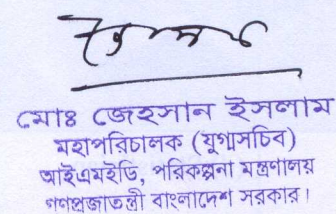 মোঃ জেহসান ইসলাম
মহাপরিচালক (যুগ্মসচিব)
আইএমইডি, পরিকল্পনা মন্ত্রণালয়
গণপ্রজাতন্ত্রী বাংলাদেশ সরকার।